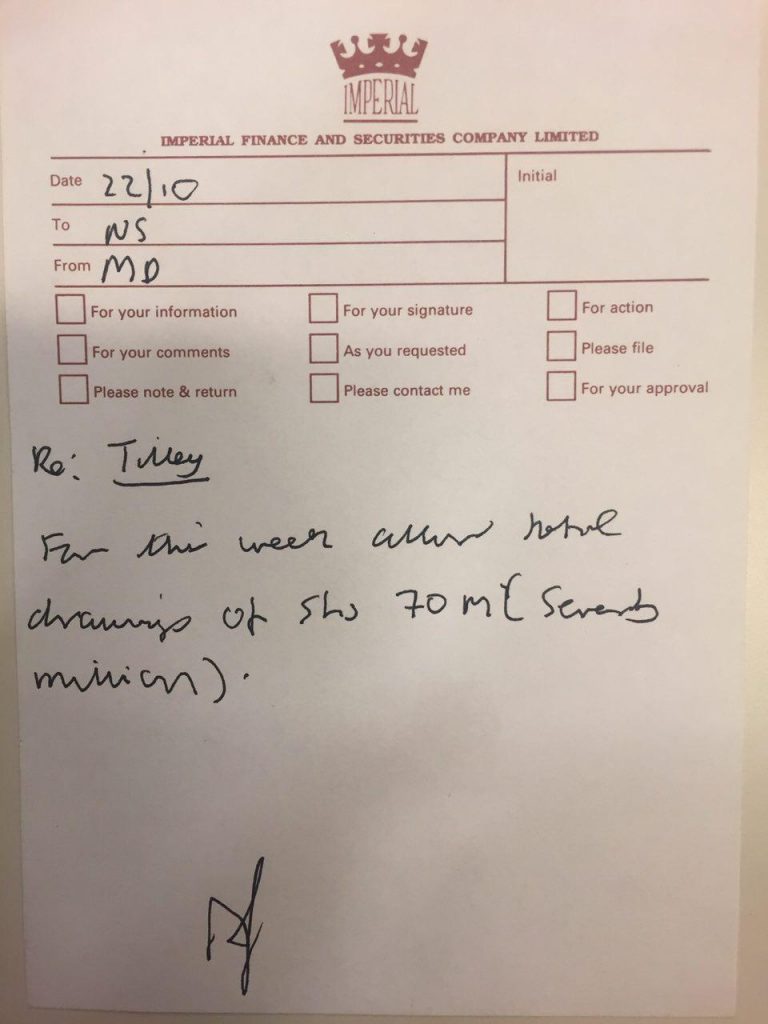 IMPERIAL
IMPERIAL FINANCE AND SECURITIES COMPANY LIMITED
Date 22/10
Initial
To NS
From MD
For your information
For your signature
For action
For your comments
As you requested
Please file
Please note & return
Please contact me
For your approval
Re: Tilley
For this week allow total
drawings of Shs 70 M (Seventy
million).